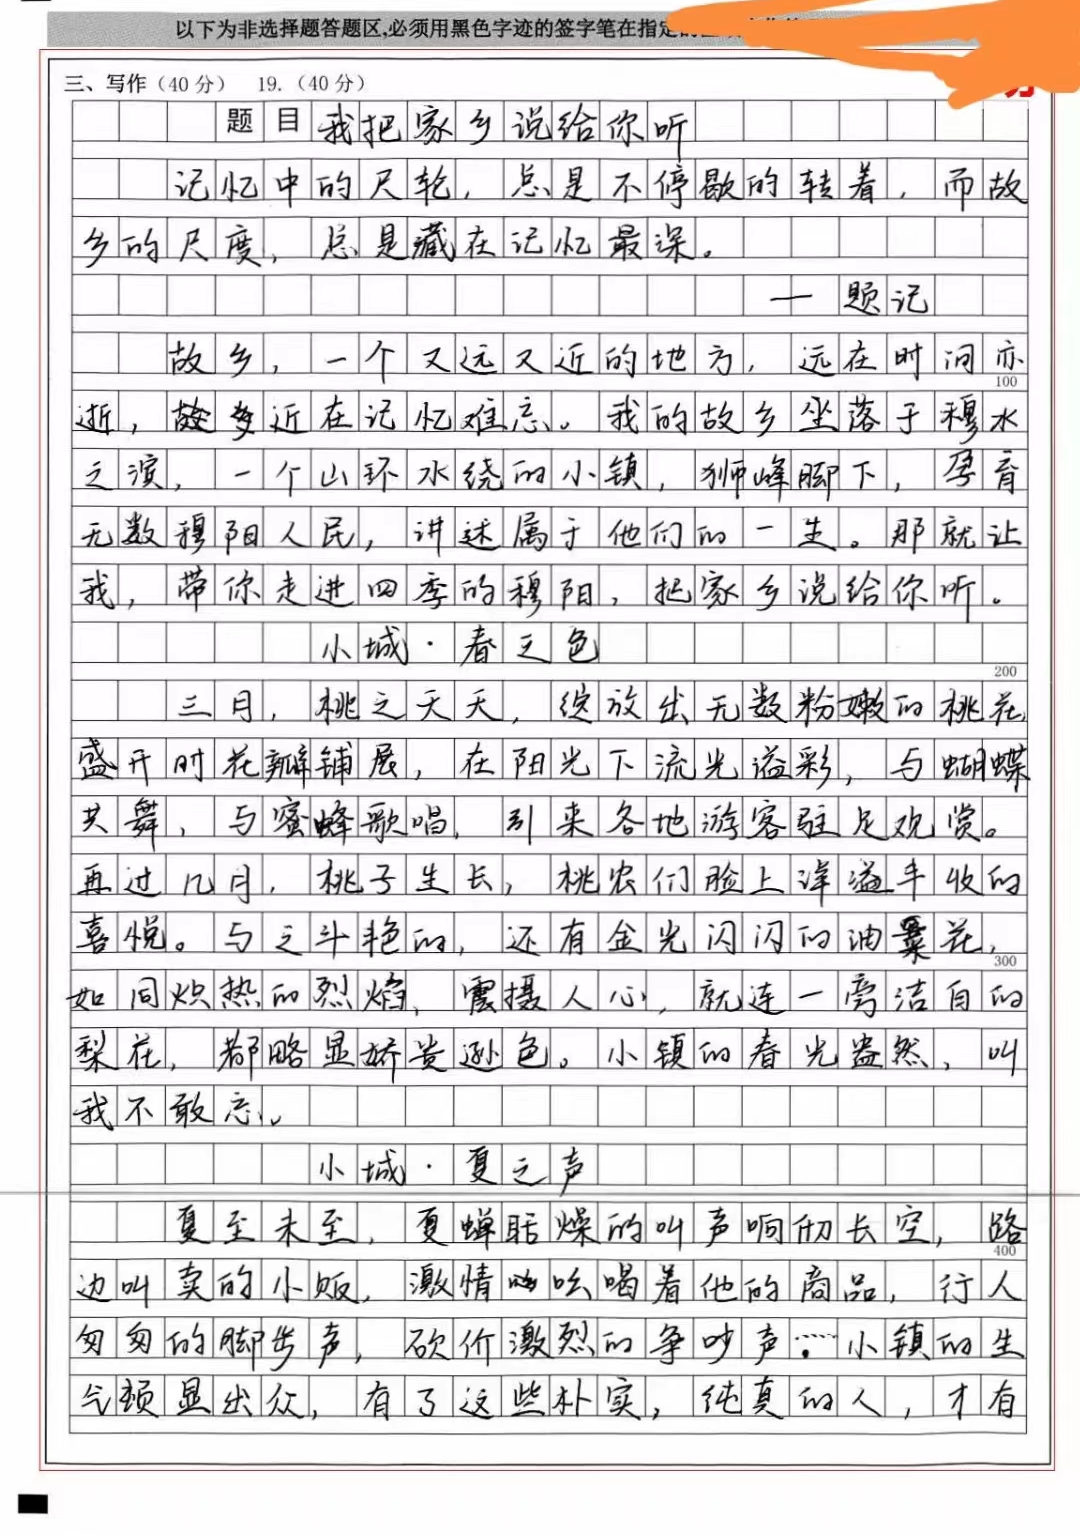 以下为非选择题答题区,必须用黑色字迹的签字笔在指定的
三、写作（40分） 19.（40分）
题目我把家乡说给你听
记忆中的尺轮，总是不停歇的转着，而故
乡的尺度，总是藏在记忆最深。
一题记
故乡，一个又远又近的地方，远在时间亦
100
逝，近在记忆难忘。我的故乡坐落于穆水
之滨，一个山环水绕的小镇，狮峰脚下，孕育
无数穆阳人民，讲述属于他们的一生。那就让
我，带你走进四季的穆阳，把家乡说给你听。
小城·春之色
200
三月，桃之夭夭，绽放出无数粉嫩的桃花，
盛开时花瓣铺展，在阳光下流光溢彩，与蝴蝶
共舞，与蜜蜂歌唱，引来各地游客驻足观赏。
再过几月，桃子生长，桃农们脸上洋溢丰收的
喜悦。与之斗艳的，还有金光闪闪的油菜花，
300
如同炽热的烈焰，震摄人心，就连一旁洁白的
梨花，都略显娇贵逊色。小镇的春光盎然，叫
我不敢忘。
小城·夏之声
夏至未至，夏蝉聒燥的叫声响彻长空，路
400
边叫卖的小贩，激情吆喝着他的商品，行人
匆匆的脚步声，砍价激烈的争吵声……小镇的生
气颇显出众，有了这些朴实，纯真的人，才有